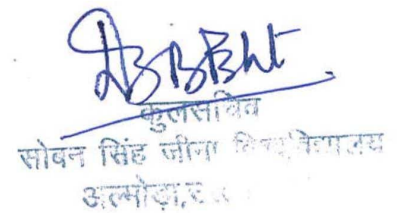 कुलसचिव
सोबन सिंह जीना विश्वविद्यालय
अल्मोड़ा,